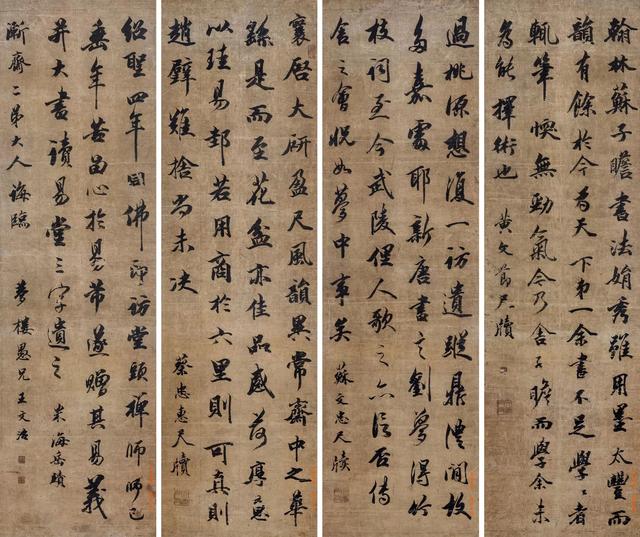 翰林蘇子瞻書法娟秀雖用墨太豐而
韻有餘於今為天下第一余書不足學學者
輒筆愞無勁氣今乃舍子瞻而學余未
為能擇術也
黃文節尺牘
過桃源想復一訪遺蹤鼎澧間故
多嘉處耶新唐書言劉夢得竹
枝詞至今武陵俚人歌之亦信否傳
舍之會怳如夢中事矣
蘇文忠尺牘
襄啓大研盈尺風韻異常齋中之華
繇是而至花盆亦佳品感荷厚意
以珪易邽若用商於六里則可真則
趙璧難捨尚未决
蔡忠惠尺牘
紹聖四年因佛印訪堂頭禪師師已
垂年苦留心於易帶遂贈其易義
并大書讀易堂三字遺之
米海岳蹟
漸齋二弟大人誨臨
夢樓愚兄王文治